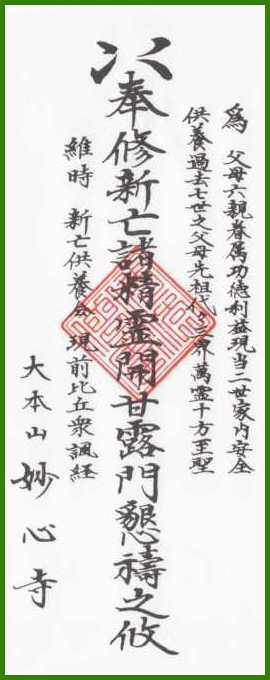 為 父母六親眷属功徳利益現当二世家内安全
供養過去七世之父母先祖代々三界萬霊十方至聖
奉修新亡諸精霊開甘露門懇禱之攸
維時 新亡供養会 現前比丘衆諷経
大本山 妙心寺